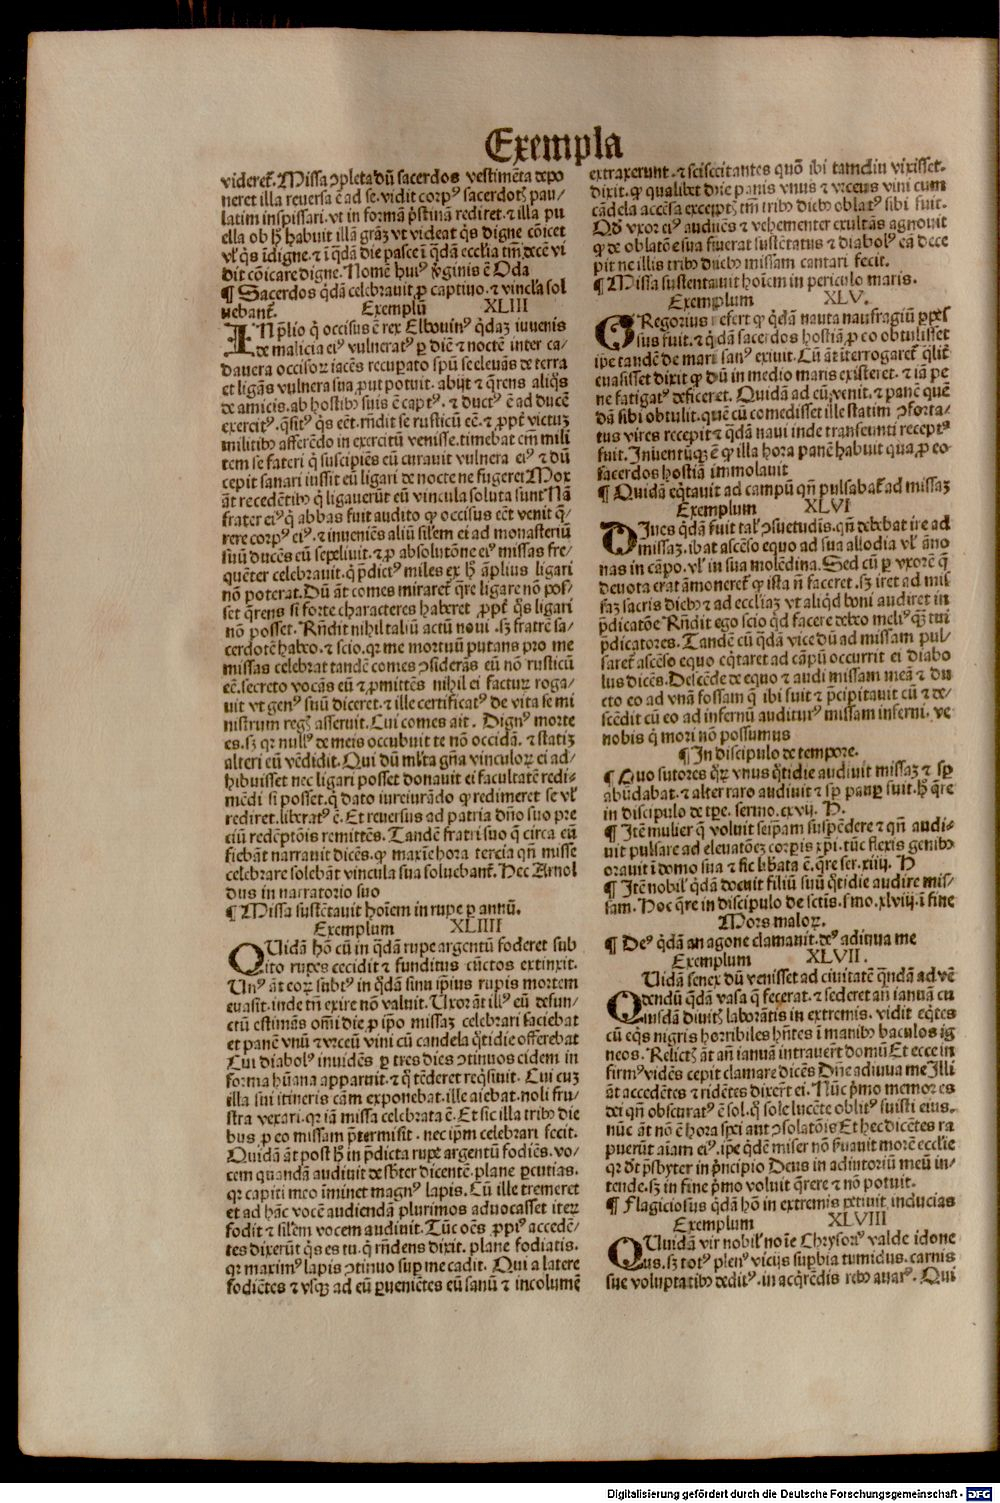 Exempla
videret᷑. Missa ꝯpleta dū sacerdos vestimēta depo
neret illa reuersa ē ad se. vidit corpꝰ sacerdotꝭ pau/
latim inspissari. vt in formā pͥstinā rediret. ⁊ illa pu
ella ob hͦ habuit illā grāꝫ vt videat qͥs digne cōicet
vl̓ qͥs īdigne. ⁊ ī qͣdā die pasce ī qͣdā eccl̓ia tm̄ decē vi
dit cōicare digne. Nomē huiꝰ vͥginis ē Oda
¶ Sacerdos qͥdā celebrauit ꝓ captiuo. ⁊ vincl̓a sol
uebant᷑. Exemplū XLIII
IN pͥlio qͥ occisus ē rex Elbouinꝰ qͥdaꝫ iuuenis
de malicia eiꝰ vulneratꝰ ꝑ diē ⁊ noctē inter ca/
dauera occisoꝝ iacēs recuꝑato spū se eleuās de terra
et ligās vulnera sua ꝓut potuit. abijt ⁊ qͥrens aliqͦs
de amicis. ab hostibꝰ suis ē captꝰ. ⁊ ductꝰ ē ad ducē
exercitꝰ. qͥsitꝰ qͥs eēt. rn̄dit se rusticū eē. ⁊ ꝓpt᷑ victuꝫ
militibꝰ afferēdo in exercitū venisse. timebat em̄ mili
tem se fateri qͥ suscipiēs eū curauit vulnera eiꝰ ⁊ dū
cepit sanari iussit eū ligari de nocte ne fugeret Mox
āt recedētibꝰ qͥ ligauerūt eū vincula soluta sunt Nā
frater eiꝰ qͥ abbas fuit audito ꝙ occisus eēt venit qͥ/
rere corpꝰ eiꝰ. ⁊ inueniēs aliū sil̓em ei ad monasteriū
suū ducēs eū sepeliuit. ⁊ ꝓ absolutōne eiꝰ missas fre/
quēter celebrauit. qͥ pͥdictꝰ miles ex hͦ āplius ligari
nō poterat. Dū āt comes miraret᷑ qͥre ligare nō pos/
set qͥrens si forte characteres haberet ꝓpt᷑ qͦs ligari
nō posset. Rn̄dit nihil taliū actū noui. sꝫ fratrē sa/
cerdotē habeo. ⁊ scio. qꝛ me mortuū putans pro me
missas celebrat tandē comes ꝯsiderās eū nō rusticū
eē. secreto vocās eū ⁊ ꝓmittēs nihil ei facturꝰ roga/
uit vt genꝰ suū diceret. ⁊ ille certificatꝰ de vita se mi
nistrum regꝭ asseruit. Cui comes ait. Dignꝰ morte
es. sꝫ qꝛ nullꝰ de meis occubuit te nō occidā. ⁊ statiꝫ
alteri eū vēdidit. Qui dū ml̓ta gn̄a vinculoꝝ ei ad/
hibuisset nec ligari posset donauit ei facultatē redi/
mēdi si posset. qͥ dato iureiurādo ꝙ redimeret se vl̓
rediret. liberatꝰ ē. Et reuersus ad patria dn̄o suo pre
ciū redēptōis remittēs. Tandē fratri suo qͥ circa eū
fiebāt narrauit dicēs. ꝙ maxīe hora tercia qn̄ misse
celebrare solebāt vincula sua soluebant᷑. Hec Arnol
dus in narratorio suo
¶ Missa sustētauit hoīem in rupe ꝑ annū.
Exemplum XLIIII
QUidā hō cū in qͣdā rupe argentū foderet sub
ito rupes cecidit ⁊ funditus cūctos extinxit.
Unꝰ āt eoꝝ subtꝰ in qͣdā sinu ipīus rupis mortem
euasit. inde tn̄ exire nō valuit. Uxor āt illiꝰ eū defun/
ctū estimās om̄i die ꝓ ip̄o missaꝫ celebrari faciebat
et panē vnū ⁊ vrceū vini cū candela qͦtidie offerebat
Cui diabolꝰ inuidēs ꝑ tres dies ꝯtinuos eidem in
forma hūana apparuit. ⁊ qͦ tēderet reqͥsiuit. Cui cuꝫ
illa sui itineris cām exponebat. ille aiebat. noli fru/
stra vexari. qꝛ iā missa celebrata ē. Et sic illa tribꝰ die
bus ꝓ eo missam pͥtermisit. nec ip̄m celebrari fecit.
Quidā āt post hͦ in pͥdicta rupe argentū fodiēs. vo/
cem quandā audiuit desb̓ter dicentē. plane ꝑcutias.
qꝛ capiti meo īminet magnꝰ lapis. Cū ille tremeret
et ad hāc vocē audiendā plurimos aduocasset iteꝝ
fodit ⁊ sil̓em vocem audiuit. Tūc oēs ꝓpiꝰ accedē/
tes dixerūt qͥs es tu. qͥ rn̄dens dixit. plane fodiatis.
qꝛ maximꝰ lapis ꝯtinuo suꝑ me cadit. Qui a latere
fodiētes ⁊ vsqꝫ ad eū ꝑuenietēs eū sanū ⁊ incolumē
extraxerunt. ⁊ sciscitantes quō ibi tamdiu vixisset.
dixit. ꝙ qualibet die panis vnus ⁊ vrceus vini cum
cādela accēsa exceptꝭ tm̄ tribꝰ diebꝰ oblatꝰ sibi fuit.
Qd̓ vxor eiꝰ audiēs ⁊ vehementer exultās agnouit
ꝙ de oblatōe sua fuerat sustētatus ⁊ diabolꝰ eā dece
pit ne illis tribꝰ diebꝰ missam cantari fecit.
¶ Missa sustentauit hoīem in periculo maris.
Exemplum XLV.
GRegorius refert ꝙ qͥdā nauta naufragiū ꝑpes
sus fuit. ⁊ qͥdā sacerdos hostiā ꝓ eo obtulisset
ip̄e tandē de mari sanꝰ exiuit. Cū āt īterrogaret᷑ ql̓it̓
euasisset dixit ꝙ dū in medio maris existeret. ⁊ iā pe
ne fatigatꝰ deficeret. Quidā ad eū venit. ⁊ panē quē
dā sibi obtulit. quē cū comedisset ille statim ꝯforta/
tus vires recepit ⁊ qͥdā naui inde transeunti receptꝰ
fuit. Inuentūqꝫ ē ꝙ illa hora panē habuit qua ꝓ eo
sacerdos hostiā immolauit
¶ Quidā eqͥtauit ad campū qn̄ pulsabat᷑ ad missaꝫ
Exemplum XLVI
DIues qͥdā fuit tal̓ ꝯsuetudīs. qn̄ debebat ire ad
missaꝫ. ibat ascēso equo ad sua allodia vl̓ āno
nas in cāpo. vl̓ in sua molēdina. Sed cū ꝑ vxorē qͥ
deuota erat āmoneret᷑ ꝙ ista n̄ faceret. sꝫ iret ad mis
saꝫ sacris diebꝰ ⁊ ad eccl̓iaꝫ vt aliqͥd boni audiret in
pͥdicatōe Rn̄dit ego scio qͥd facere debeo meliꝰ qͣꝫ tui
pͥdicatores. Tandē cū qͥdā vice dū ad missam pul/
saret᷑ ascēso equo eqͥtaret ad cāpū occurrit ei diabo
lus dicēs. Descēde de equo ⁊ audi missam meā ⁊ du
cto eo ad vnā fossam qͥ ibi fuit ⁊ pͥcipitauit eū ⁊ de/
scēdit cū eo ad infernū auditurꝰ missam inferni. ve
nobis qͥ mori nō possumus
¶ In discipulo de tempore.
¶ Duo sutores qͦꝝ vnus qͦtidie audiuit missaꝫ ⁊ sꝑ
abūdabat. ⁊ alter raro audiuit ⁊ sꝑ pauꝑ fuit. hͦ qͥre
in discipulo de tꝑe. sermo. cxvij. H.
¶ Itē mulier qͥ voluit seip̄am suspēdere ⁊ qn̄ audi/
uit pulsare ad eleuatōeꝫ corꝑis xp̄i. tūc flexis genibꝰ
orauit ī domo sua ⁊ sic lib̓ata ē. qͥre ser. xiiij. H
¶ Itē nobil̓ qͥdā docuit filiū suū qͦtidie audire mis/
sam. Hoc qͥre in discipulo de sctīs. s̓mo. xlviij. ī fine
Mors maloꝝ.
¶ Deꝰ qͥdā an agone clamauit. deꝰ adiuua me
Exemplum XLVII.
QUidā senex dū venisset ad ciuitatē qͣndā ad vē
dendū qͥdā vasa qͥ fecerat. ⁊ sederet an̄ ianuā cu
iusdā diuitꝭ laborātis in extremis. vidit eqͥtes
cū eqͥs nigris horribiles hn̄tes ī manibꝰ baculos ig
neos. Relictꝭ āt an̄ ianuā intrauerūt domū Et ecce in
firmꝰ vidēs cepit clamare dicēs Dn̄e adiuua me Illi
āt accedētes ⁊ ridētes dixer̄t ei. Nūc pͥmo memor es
dei qn̄ obscuratꝰ ē sol. qͥ sole lucēte oblitꝰ fuisti eius.
nūc āt nō ē hora spei aut ꝯsolatōis Et hec dicētes ra
puerūt aīam eiꝰ. ip̄e qͥdē miser nō seruauit morē eccl̓ie
qꝛ dr̄t pͥsbyter in pͥncipio Deus in adiutoriū meū in/
tende. sꝫ in fine pͥmo voluit qͥrere ⁊ nō potuit.
¶ Flagiciosus qͥdā hō in extremis petiuit inducias
Exemplum XLVIII
QUidā vir nobil̓ noīe Chrysoriꝰ valde idone
us. sꝫ totꝰ plenꝰ vicijs suꝑbia tumidus. carnis
sue voluptatibꝰ deditꝰ. in acqͥrēdis rebꝰ auarꝰ. Qui
Digitalisierung gefördert durch die Deutsche Forschungsgemeinschaft - DFG